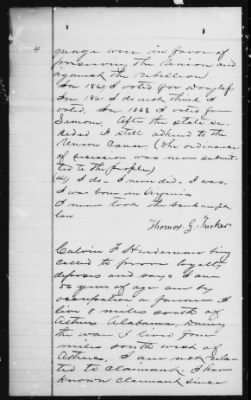 4
guage were in favor of
preserving the Union and
against the rebellion
In 1860 I voted for Douglas
In 1861 I do not think I
voted. In 1868 I voted for
Simon. After the state se-
ceded I still adhered to the
Union Cause. (The ordinance
of secession was never submit-
ted to the people)
I do - I never did - I was
I was born in Virginia
I never took the bankrupt
law
Thomas G. Tucker
Calvin F. being
called to prove loyalty
deposes and says I am
56 years of age am by
occupation a farmer I
live 8 miles south of
Athens Alabama, During
the war I lived four
miles south west of
Athens, I am not rela-
ted to claimant I have
known claimant since